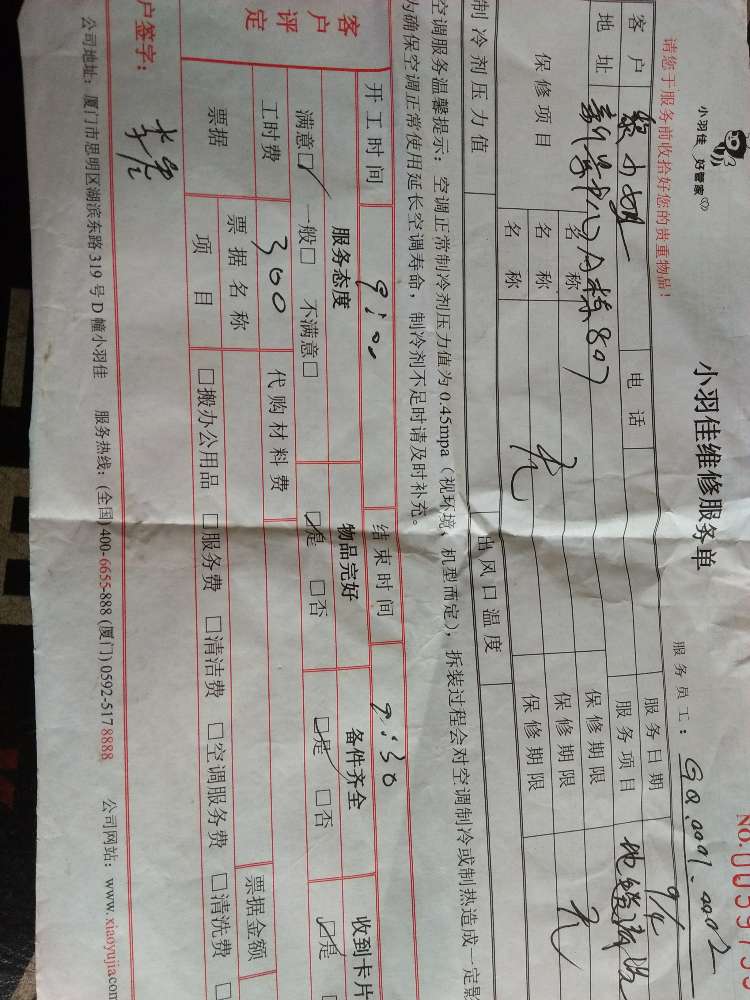 小羽佳 好管家
小羽佳维修服务单
NO.
请您于服务前收拾好您的贵重物品！
服务员工：GQ.0001.0002
客户 电话 服务日期 9/4
地址 807 服务项目
保修项目 名称 保修期限
名称 无 保修期限 无
名称 保修期限
制冷剂压力值 出风口温度
空调服务温馨提示：空调正常制冷剂压力值为0.45mpa（视环境、机型而定），拆装过程会对空调制冷或制热造成一定影
为确保空调正常使用延长空调寿命，制冷剂不足时请及时补充。
开工时间 9:00 结束时间 9:30
客户评定 服务态度 物品完好 备件齐全 收到卡片
满意☑ 一般□ 不满意□ ☑是 □否 ☑是 □否 ☑是
工时费 300 代购材料费
票据 票据名称 票据金额
项目 □搬办公用品 □服务费 □清洁费 □空调服务费 □清洗费 □
户签字：
公司地址：厦门市思明区湖滨东路319号D幢小羽佳 服务热线：(全国)400-6655-888 (厦门)0592-5178888 公司网站：www.xiaoyujia.com